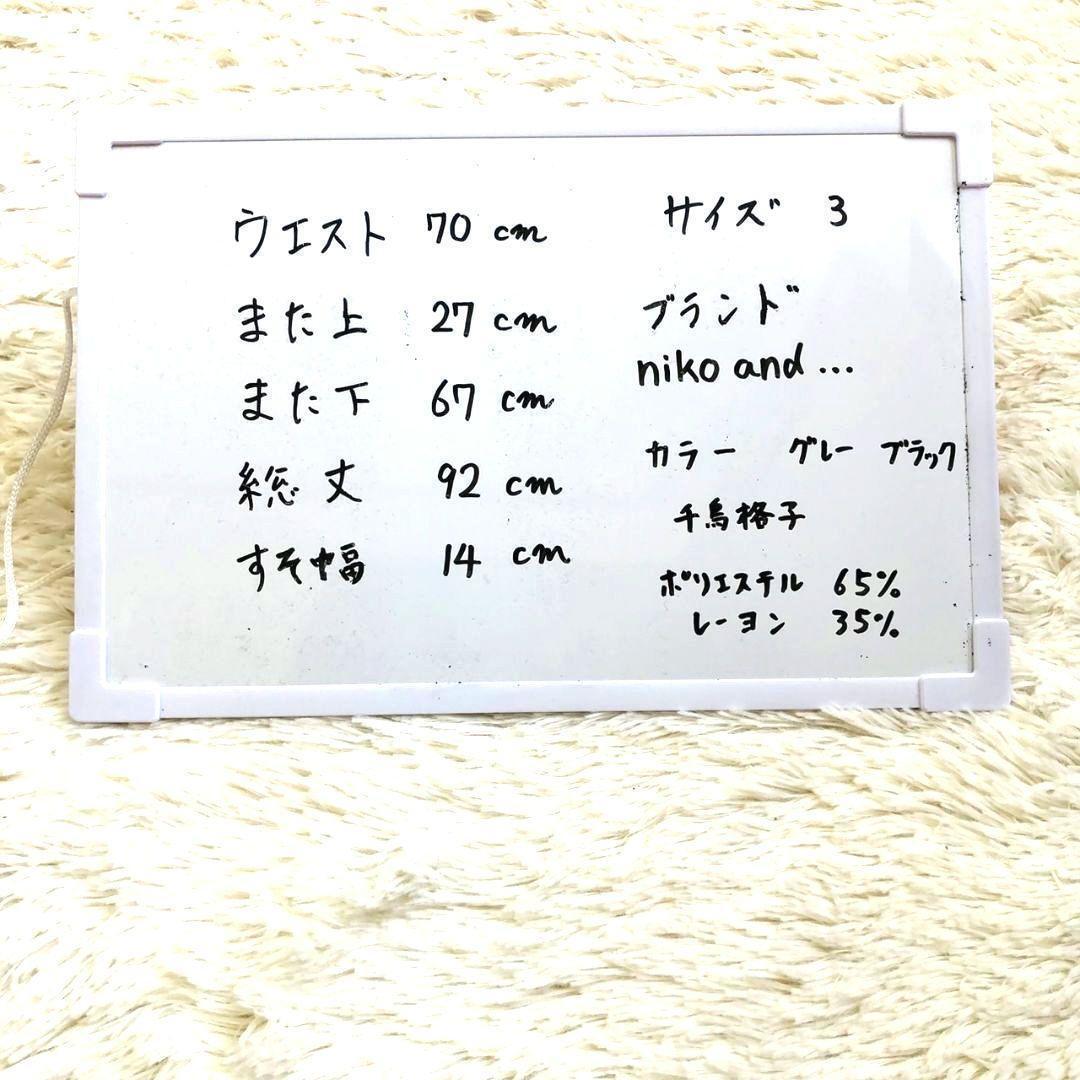 ウエスト 70 cm
また上 27 cm
また下 67 cm
総丈 92 cm
すそ幅 14 cm
サイズ 3
ブランド
niko and ...
カラー グレー ブラック
千鳥格子
ポリエステル 65%
レーヨン 35%